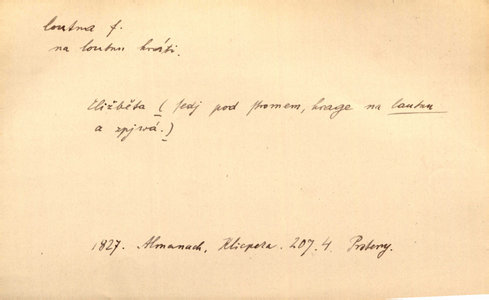 loutna f.
na loutnu hráti.
Eližběta (sedj pod stromem, hrage na lautnu
a zpjwá.)
1827. Almanach, Klicpera. 207. 4. Prsteny.